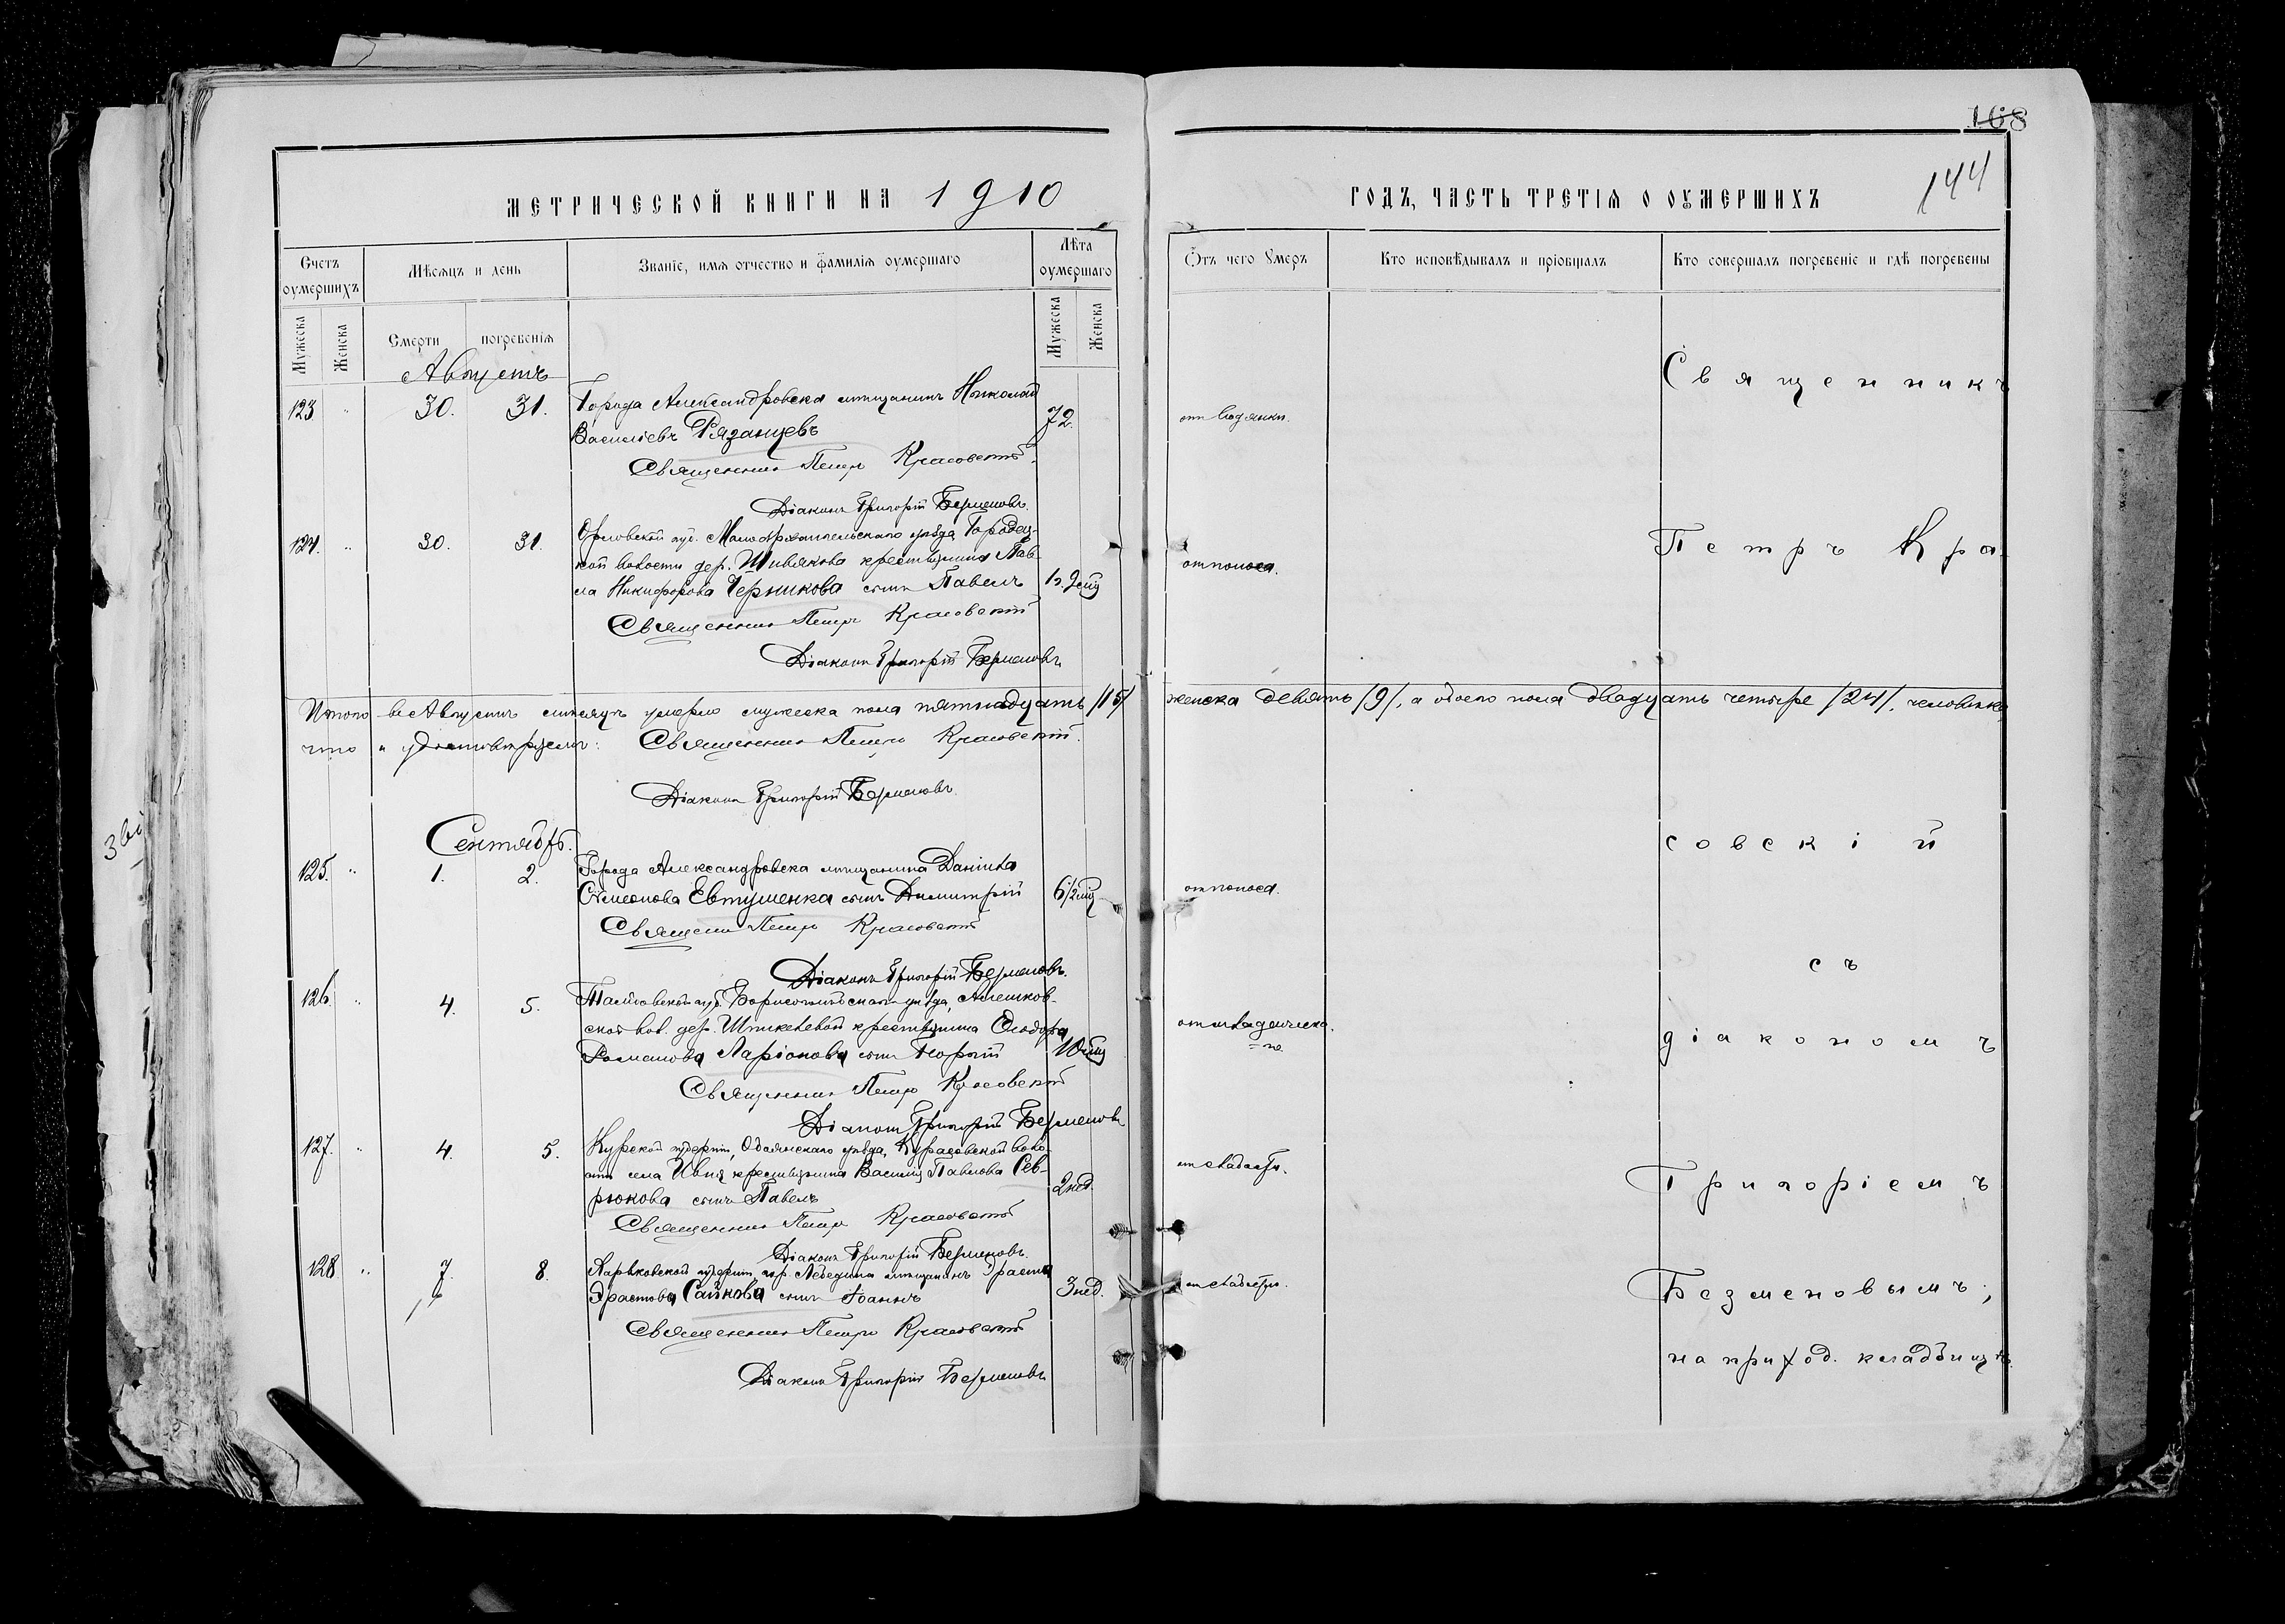 168
144
МЕТРИЧЕСКОЙ КНИГИ НА 1910
ГОДЪ, ЧАСТЬ ТРЕТІЯ О ОУМЕРШИХЪ
Счетъ оумершихъ
Мѣсяцъ и день
Званіе, имя отчество и фамилія оумершаго
Лѣта оумершаго
Отъ чего умеръ
Кто исповѣдывалъ и пріобщалъ
Кто совершалъ погребеніе и гдѣ погребены
Мужеска
Женска
Смерти
погребенія
Мужеска
Женска
Августъ
123 " 30. 31. Города Александровска мѣщанинъ Николай
Васильевъ Рязанцевъ 72. отъ водянки.
Священникъ Петръ Красовскій.
Діаконъ Григорій Безменовъ.
124. " 30. 31. Орловской губ. Малоархангельскаго уѣзда, Городец-
кой волости дер. крестьянина Пав-
ла Никифорова Черникова сынъ Павелъ отъ поноса.
Священникъ Петръ Красовскій
Діаконъ Григорій Безменовъ
Итого въ Августѣ мѣсяцѣ умерло мужеска пола пятнадцать /15/ женска девять /9/, а обоего пола двадцать четыре /24/. человѣка
что и удостовѣряемъ: Священникъ Петръ Красовскій.
Діаконъ Григорій Безменовъ.
Сентябрь.
125. " 1. 2. Города Александровска мѣщанина Даніила
Симеонова Евтушенка сынъ Димитрій 6 1/2 мѣц отъ поноса.
Священникъ Петръ Красовскій
Діаконъ Григорій Безменовъ.
126. " 4. 5. Тамбовской губ. Борисоглѣбскаго уѣзда, Алешков-
ской вол. дер. крестьянина Ѳеодора
Романова Ларіонова сынъ Георгій 10 мѣц отъ младенческа
=го
Священникъ Петръ Красовскій
Діаконъ Григорій Безменовъ
127. " 4. 5. Курской губерніи, Обоянскаго уѣзда, Курасовской воло-
сти села Ивня крестьянина Василія Павлова Сев-
рюкова сынъ Павелъ 2 нед. отъ слабости.
Священникъ Петръ Красовскій
Діаконъ Григорій Безменовъ.
128 " 7. 8. Харьковской губерніи, гор. Лебедина мѣщанинъ Эраста
Эрастова Сайкова сынъ Іоаннъ 3 нед. отъ слабости.
Священникъ Петръ Красовскій
Діаконъ Григорій Безменовъ
Священникъ
Петръ Кра-
совскій
съ
діакономъ
Григоріемъ
Безменовымъ;
на приход. кладбищѣ.